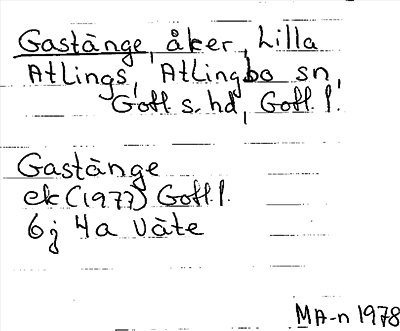 Gastänge, åker, Lilla
Atlings, Atlingbo sn,
Gotl s. hd, Gotl. l.
Gastänge
ek (1977) Gotl. l.
6j 4a Väte
MA-n 1978